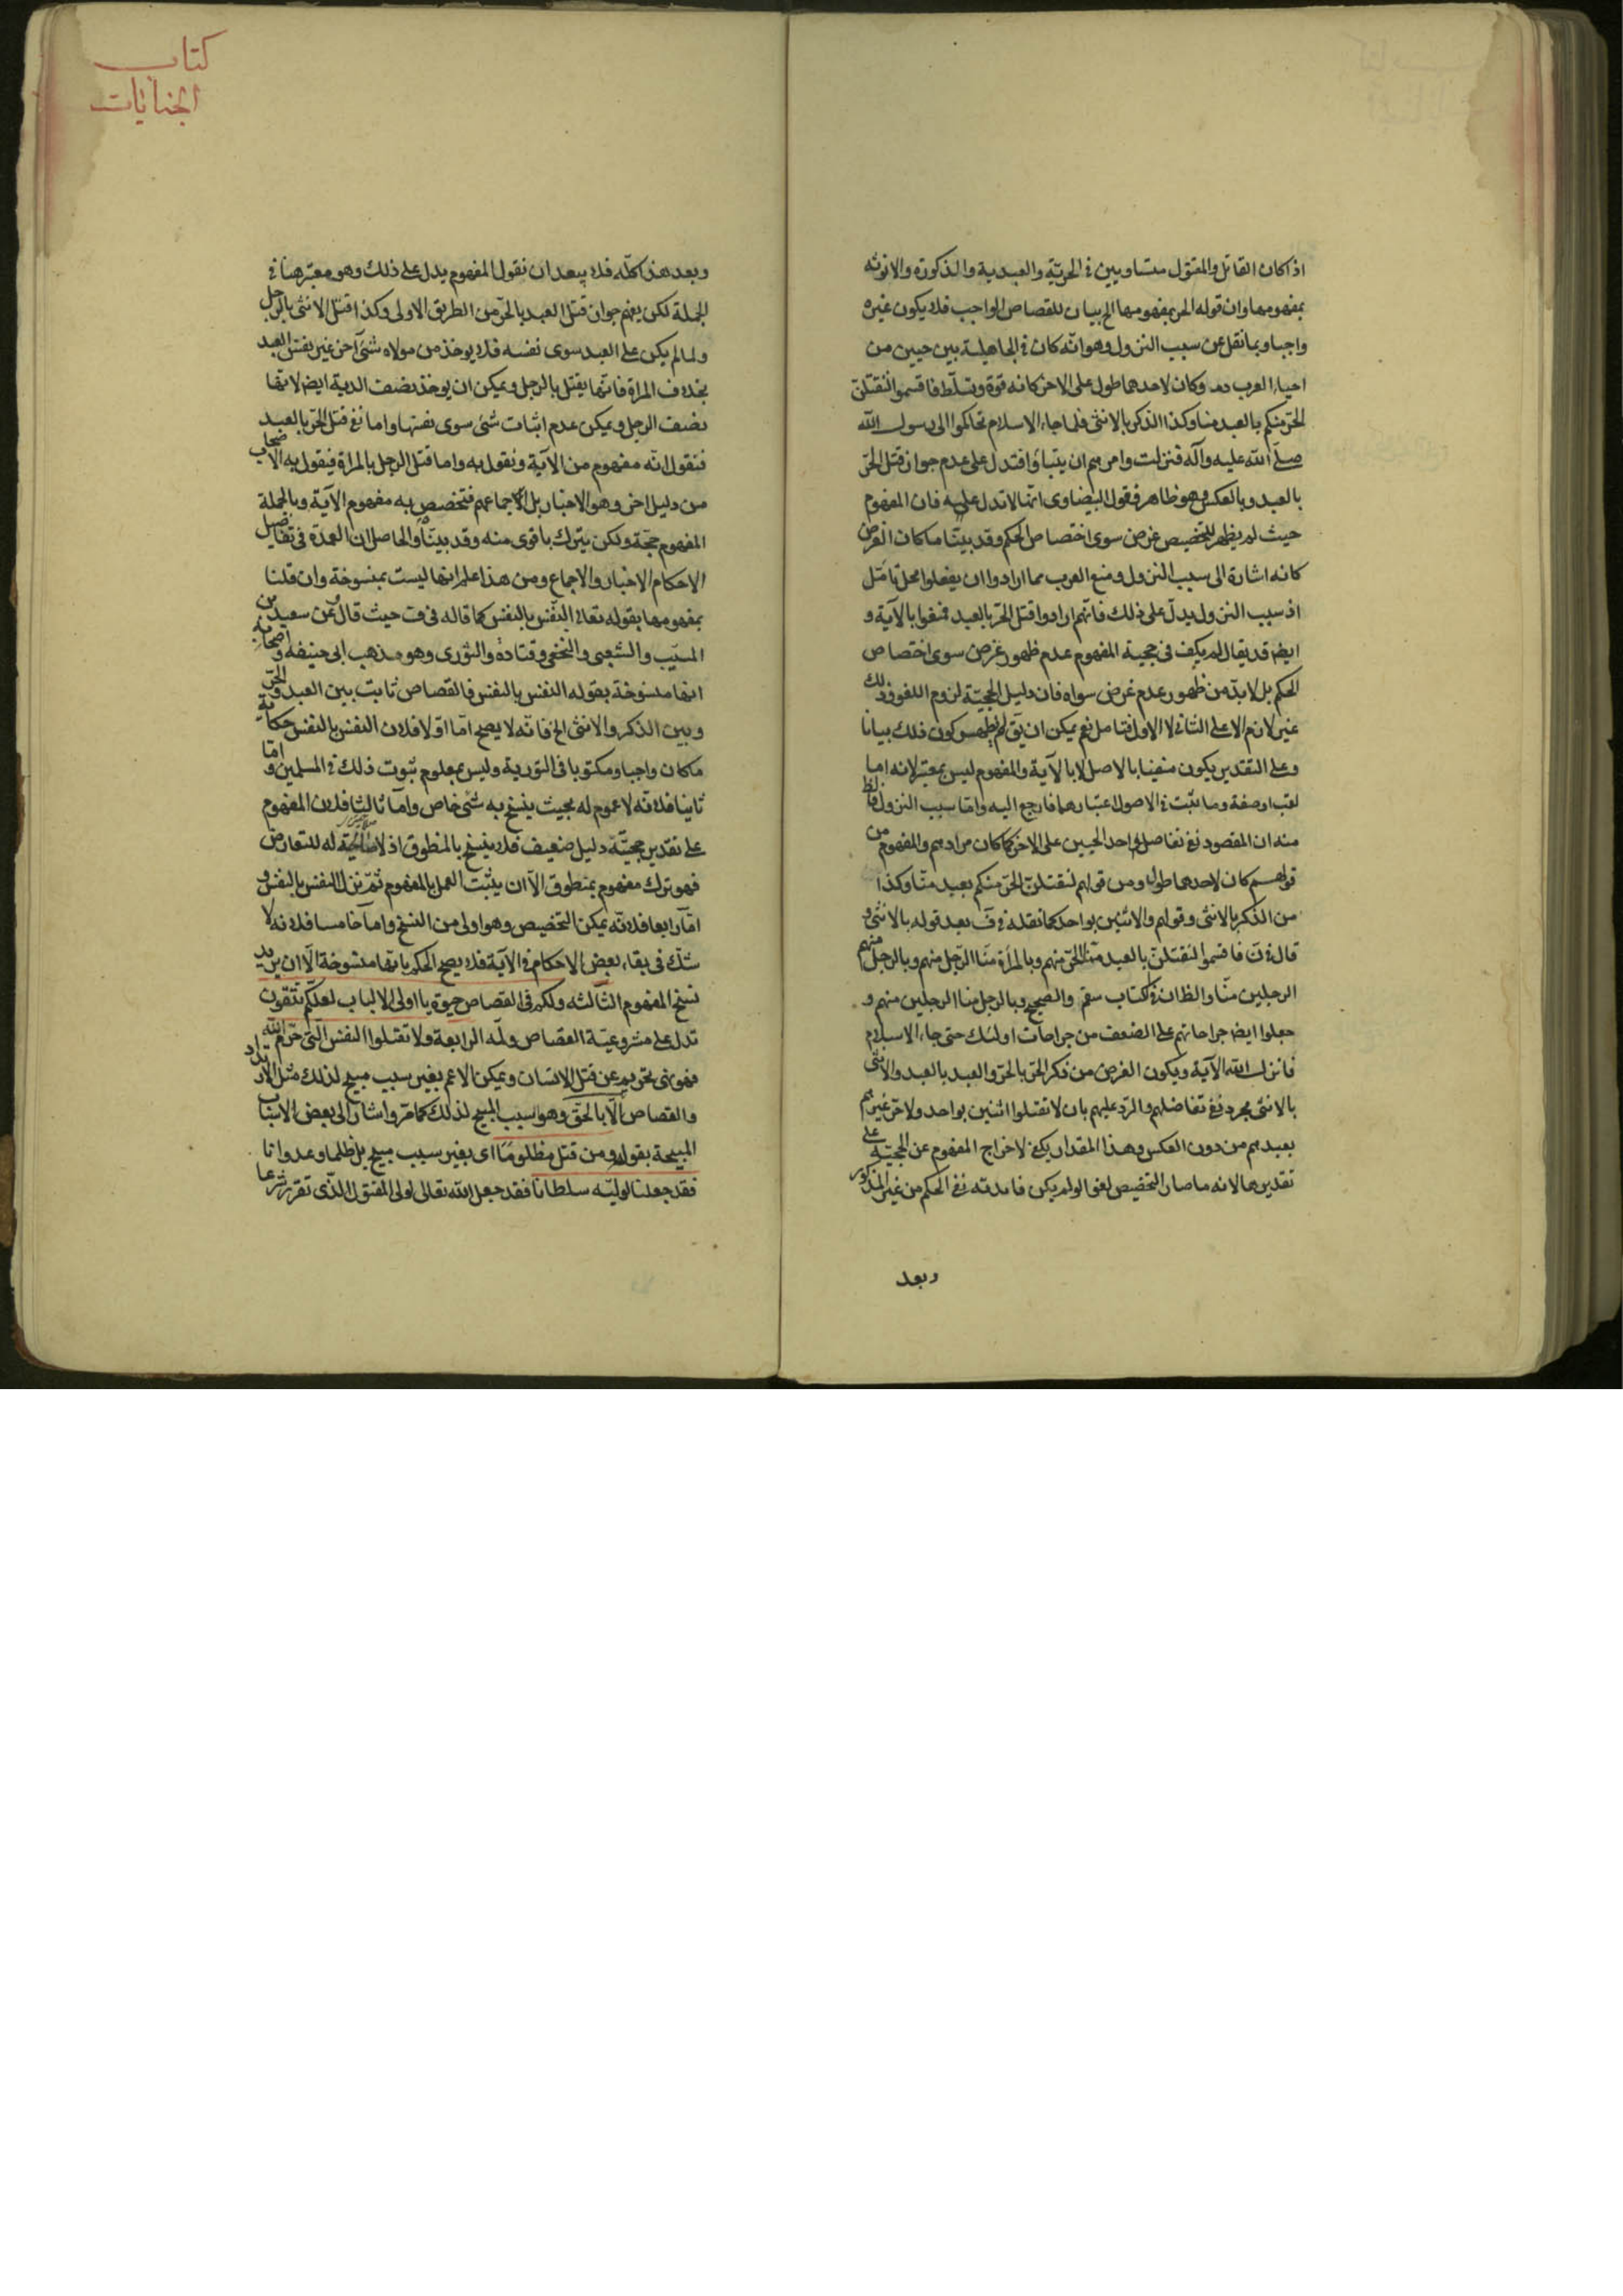 اذا كان القاتل والمقتول متساويين فى الحريّة والعبدية والذكورة والانوثه
بمفهومها وان قوله الحر بمفهومها الخ بيان للقصاص الواجب فلا يكون غيره
واجبا وبما نقل عن سبب النزول وهو انّه كان فى الجاهلية بين حيين من
احياء العرب دم وكان لاحدهما طول على الاخر كانه قوة وتسلّط فاقسموا لنقتلنّ
الحرّ منكم بالعبد منا وكذا الذكر بالانثى فلما جاء الاسلام تحاكموا الى رسول الله
صلى الله عليه وآله فنزلت وامرهم ان يتباؤا فتدل على عدم جواز قتل الحرّ
بالعبد وبالعكس وهو ظاهر فقول البيضاوى انّها لا تدل عليه فان المفهوم
حيث لم يظهر للتخصيص غرض سوى اختصاص الحكم وقد بيّنّا ما كان الغرض
كانه اشارة الى سبب النزول ومنع العرب مما ارادوا ان يفعلوا محل تامّل
اذ سبب النزول يدلّ على ذلك فانّهم ارادوا قتل الحرّ بالعبد فمنعوا بالآية و
ايضا قد يقال لم يكف فى حجية المفهوم عدم ظهور غرض سوى اختصاص
الحكم بل لابدّ من ظهور عدم غرض سواه فان دليل الحجيّة لزوم اللغو وذلك
غير لازم الا على الثانى لا الاول فتامل نعم يمكن ان يق لم يظهر كون ذلك بيانا
وعلى التقدير يكون منفيا بالاصل لا بالآية والمفهوم ليس بمعتبر لانه اما
لقب او صفة وما ثبت فى الاصول اعتبارهما فارجع اليه وامّا سبب النزول فالظ
منه ان المقصود نفى تفاضل احد الحيين على الاخر كما كان مرادهم والمفهوم من
قولهم كان لاحدهما طول ومن قولهم لنقتلنّ الحرّ منكم بعبد منّا وكذا
من الذكر بالانثى وقولهم والاثنين بواحد كما نقله فى ف بعد قوله بالانثى و
قال فى ن فاقسموا لنقتلنّ بالعبد منّا الحرّ منهم وبالمرأة منّا الرّجل منهم وبالرجل منهم
الرجلين منّا والظان فى الكتاب سقم والصحيح وبالرجل منا الرجلين منهم و
جعلوا ايضا جراحاتهم على الضعف من جراحات اولئك حتى جاء الاسلام
فانزل الله الآية ويكون الغرض من ذكر الحرّ بالحرّ والعبد بالعبد والانثى
بالانثى مجرد نفى تفاضلهم والرّد عليهم بان لا تقتلوا اثنين بواحد ولا حرّ غيرهم
بعبدهم من دون العكس وهذا المقدار يكفى لاخراج المفهوم عن الحجيّة على
تقديرها لانه ما صار التخصيص لغوا لو لم يكن فائدته نفى الحكم من غير المذكور
وبعد
كتاب
الجنايات
وبعد هذا كلّه فلا يبعد ان نقول المفهوم يدل على ذلك وهو معتبر هنا فى
الجملة لكن يفهم جواز قتل العبد بالحرّ من الطريق الاولى وكذا قتل الانثى بالرجل
ولما لم يكن على العبد سوى نفسه فلا يوخذ من مولاه شئ آخر غير نفس العبد
بخلاف المراة فانّها يقتل بالرجل ويمكن ان يوخذ نصف الدية ايضا لانها
نصف الرجل ويمكن عدم اثبات شئ سوى نفسها واما نفى قتل الحرّ بالعبد
فنقول انّه مفهوم من الآية ونقول به واما قتل الرجل بالمراة فيقول به الاصحاب
من دليل اخر وهو الاخبار بل الاجماع فتخصص به مفهوم الآية وبالجملة
المفهوم حجّة ولكن يترك باقوى منه وقد بيّنّاه والحاصل ان العمدة فى تفاصيل
الاحكام الاخبار والاجماع ومن هذا علم انها ليست بمنسوخة وان قلنا
بمفهومها بقوله تعالى النّفس بالنفس كما قاله فى ف حيث قال وعن سعيد بن
المسيّب والشعبى والنخعى وقتادة والثورى وهو مذهب ابى حنيفه واصحابه
انها منسوخة بقوله النفس بالنفس فالقصاص ثابت بين العبد والحرّ
وبين الذكر والانثى الخ فانّه لا يصح امّا اوّلا فلان النفس بالنفس حكاية
ما كان واجبا ومكتوبا فى التورية وليس بمعلوم ثبوت ذلك فى المسلمين وامّا
ثانيا فلانّه لا عموم له بحيث ينسخ به شئ خاص وامّا ثالثا فلان المفهوم
على تقدير حجيّته دليل ضعيف فلا ينسخ بالمنطوق اذ لا صلاحية له للتعارض
فهو ترك مفهوم بمنطوق الّا ان يثبت العمل بالمفهوم ثمّ نزل النفس بالنفس و
امّا رابعا فلانّه يمكن التخصيص وهو اولى من النسخ وامّا خامسا فلانه لا
شكّ فى بقاء بعض الاحكام فى الآية فلا يصح الحكم بانّها منسوخة الّا ان يريد
نسخ المفهوم الثالثه ولكم فى القصاص حيوة يا اولى الالباب لعلكم تتقون
تدل على مشروعيّة القصاص ولمه الرابعة ولا تقتلوا النفس الّتى حرّم الله
فهو نهى تحريم عن قتل الانسان ويمكن الاعم بغير سبب مبيح لذلك مثل الارتداد
والقصاص الّا بالحقّ وهو سبب المبيح لذلك كما مرّ واشار الى بعض الاسباب
المبيحة بقوله ومن قتل مظلومًا اى بغير سبب مبيح بل ظلما وعدوانا
فقد جعلنا لوليّه سلطانا فقد جعل الله تعالى لولى المقتول الذّى تقرّر شرعا